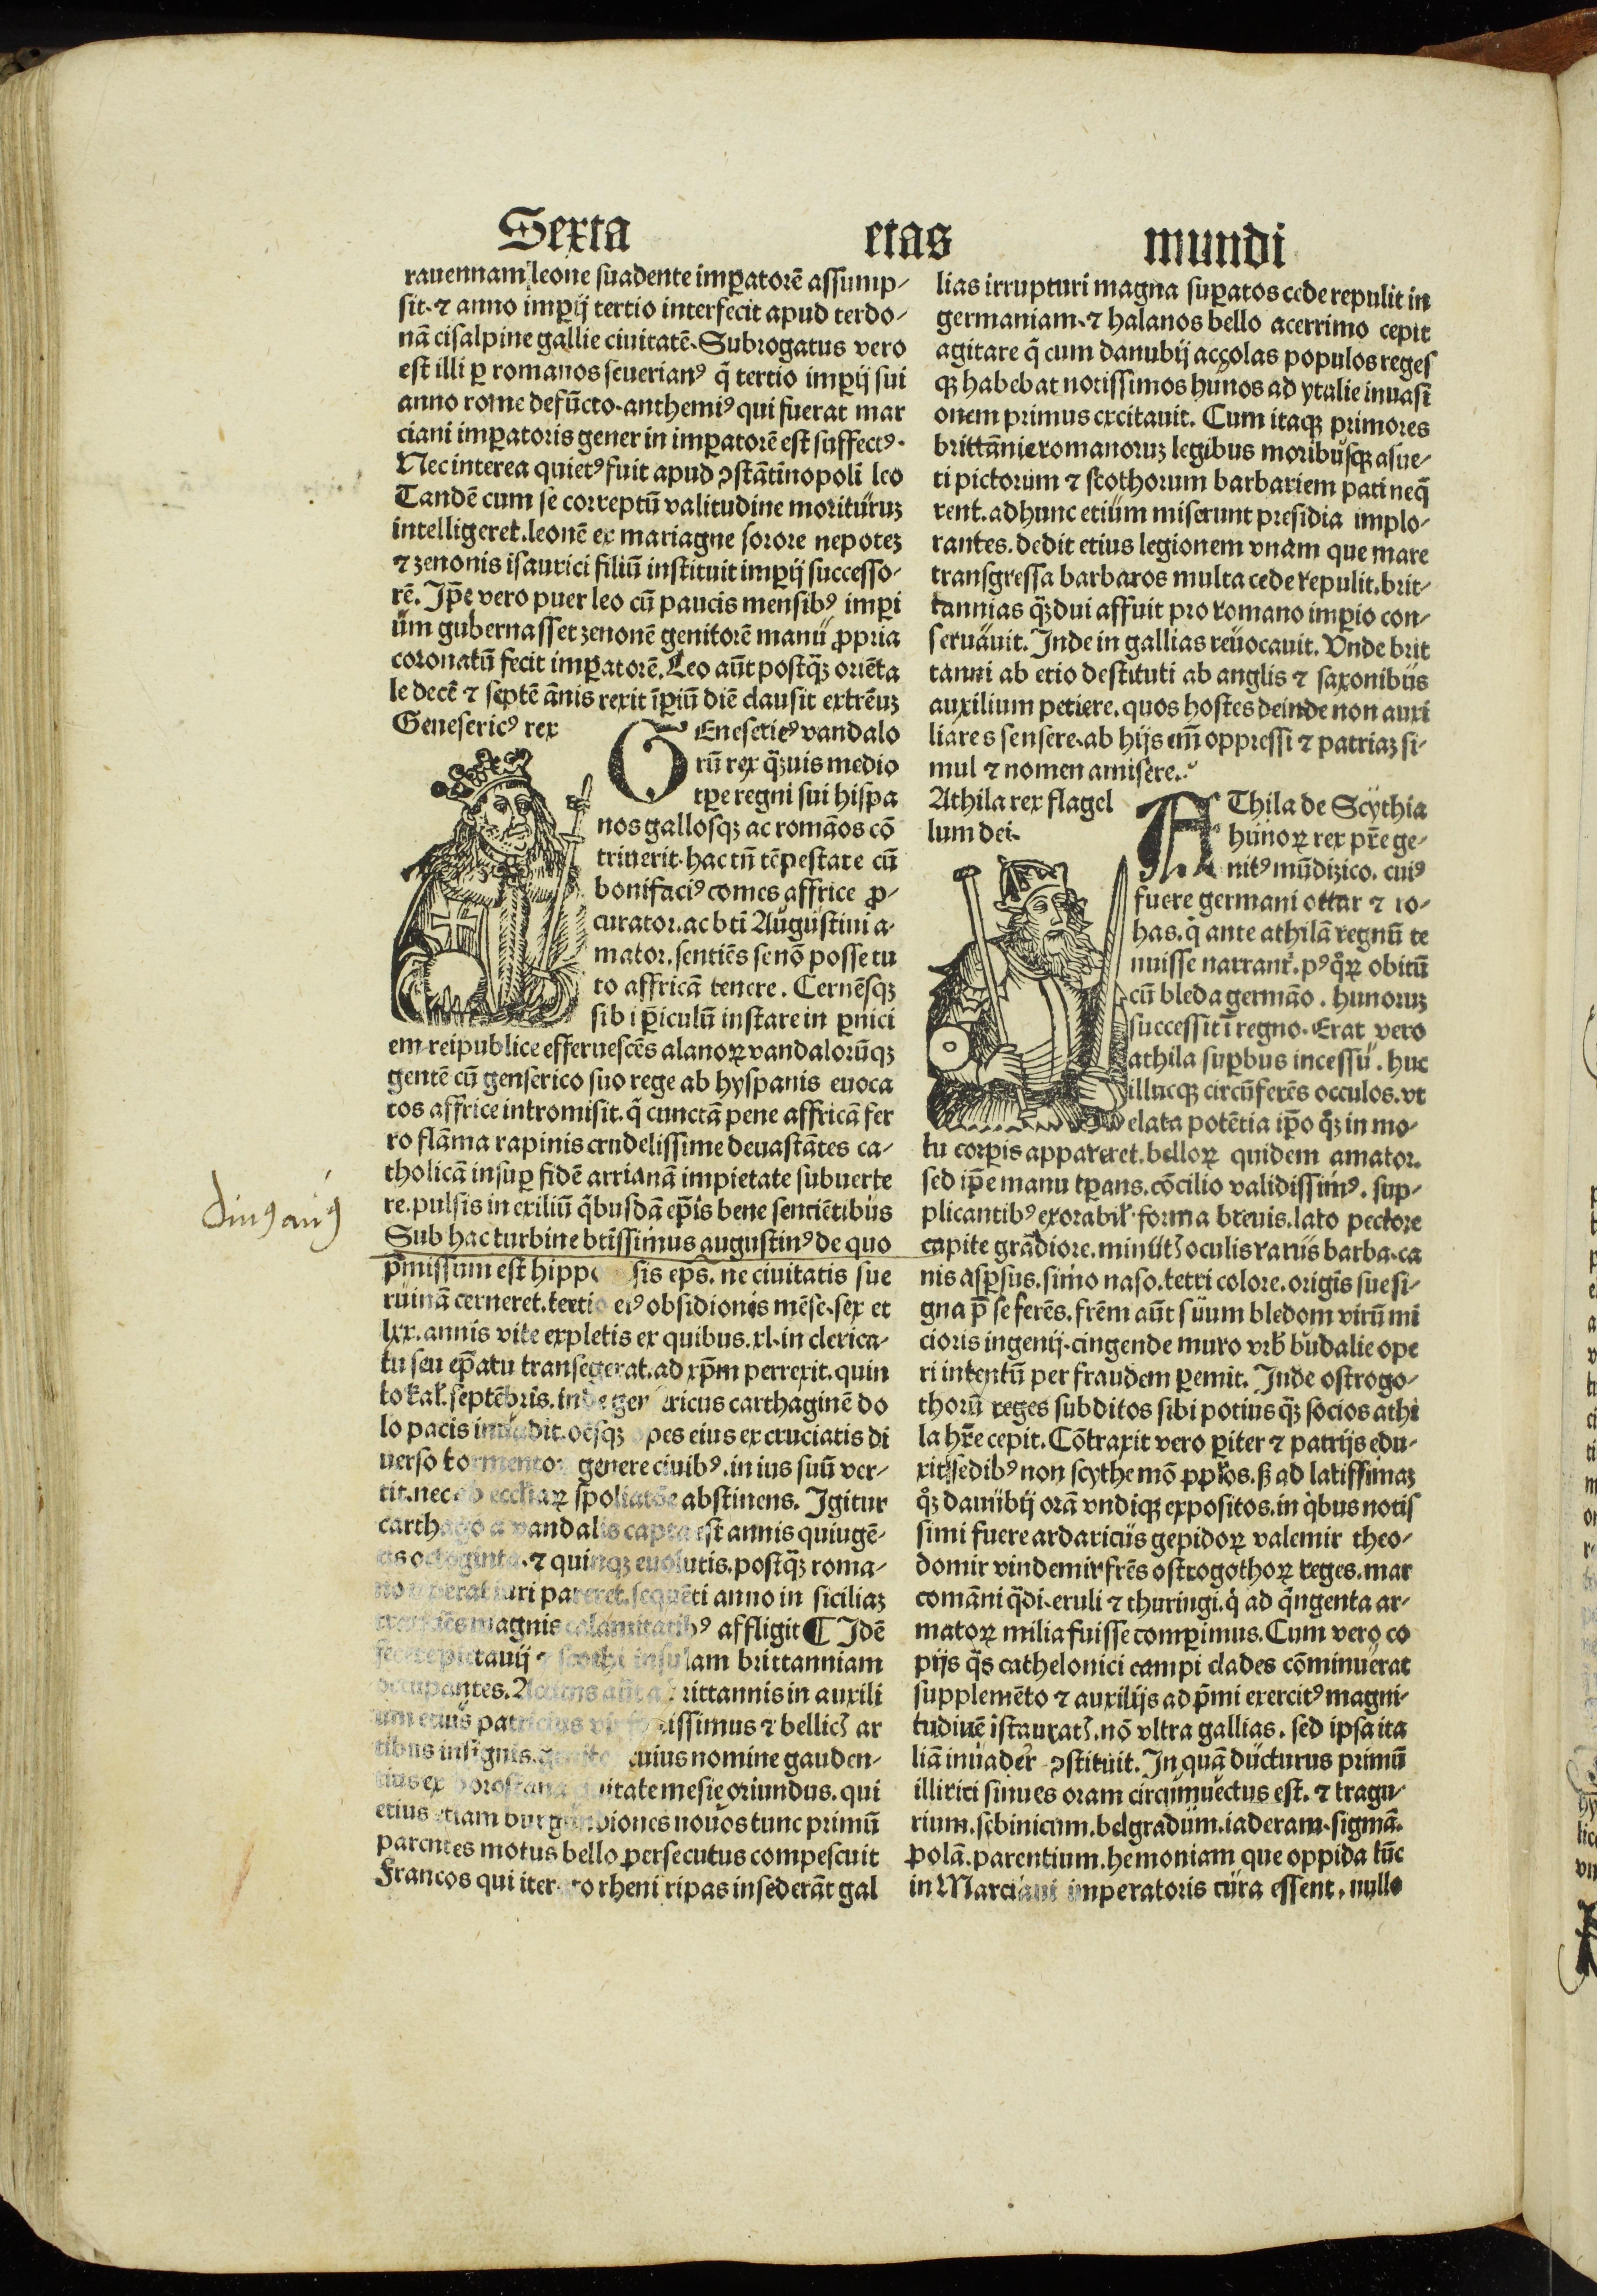 Sexta etas mundi
rauennam leone suadente imꝑatorē assump⸗
sit. ⁊ anno imꝑij tertio interfecit apud terdo⸗
nā cisalpine gallie ciuitatē. Subrogatus vero
est illi ꝑ romanos seuerianꝰ q̄ tertio imꝑij sui
anno rome defūcto. anthemiꝰ qui fuerat mar
ciani imꝑatoris gener in imꝑatorē est suffectꝰ.
Nec interea quietꝰ fuit apud ꝯstātinopoli leo
Tandē cum se correptū valitudine morituruꝫ
intelligeret. leonē ex mariagne sorore nepoteꝫ
⁊ zenonis isaurici filiū instituit imꝑij successo⸗
rē. Ip̄e vero puer leo cū paucis mensibꝰ imꝑi
um gubernasset zenonē genitorē manu ꝓpria
coronatū fecit imꝑatorē. Leo aūt postq̄ꝫ oriēta
le decē ⁊ septē ānis rexit īꝑiū diē clausit extrēuꝫ
Genesericꝰ rex
GEnesericꝰ vandalo
rū rex q̄ꝫuis medio
tꝑe regni sui hispa
nos gallosqꝫ ac romāos cō
triuerit. hac tn̄ tēpestate cū
bonifaciꝰ comes affrice ꝓ⸗
curator. ac bti Augustini a⸗
mator. sentiēs se nō posse tu
to affricā tenere. Cernēsqꝫ
sibi ꝑiculū instare in ꝑnici
em reipublice efferuescēs alanoꝝ vandalorūqꝫ
gentē cū genserico suo rege ab hyspanis euoca
tos affrice intromisit. q̄ cunctā pene affricā fer
ro flāma rapinis crudelissime deuastātes ca⸗
tholicā insuꝑ fidē arrianā impietate subuerte
re. pulsis in exiliū q̄busdā ep̄is bene sentiētibus
diuꝰ auꝰ
Sub hac turbine btissimus augustinꝰ de quo
p̄missum est hippo sis eps. ne ciuitatis sue
ruinā cerneret. tertio eiꝰ obsidionis mēse. sex et
lxx. annis vite expletis ex quibus. xl. in clerica⸗
tu seu ep̄atu transegerat. ad xp̄m perrexit. quin
to kal. septēbris. inde gen ericus carthaginē do
lo pacis inuadit. oēsqꝫ opes eius excruciatis di
uerso tormentoꝝ genere ciuibꝰ. in ius suū ver⸗
tit. nec ab eccl̄iaꝝ spoliatōe abstinens. Igitur
carthago a vandalis capta est annis quiugē⸗
tis octoginta. ⁊ quinqꝫ euolutis. postq̄ꝫ roma⸗
no ceperat iuri parere. sequēti anno in siciliaꝫ
magnis calamitatibꝰ affligit ¶ Idē
tauij ⁊ scothi insulam brittanniam
occupantes. brittannis in auxili
um etius patricius issimus ⁊ bellicꝭ ar
tibus insignis. cuius nomine gauden⸗
tius ex itate mesie oriundus. qui
etius etiam burgundiones nouos tunc primū
parentes motus bello persecutus compescuit
Francos qui iterato rheni ripas insederāt gal
lias irrupturi magna suꝑatos cede repulit in
germaniam. ⁊ halanos bello acerrimo cepit
agitare q̄ cum danubij accolas populos reges
qꝫ habebat notissimos hunos ad ytalie inuasi
onem primus excitauit. Cum itaqꝫ primores
brittānie romanoruꝫ legibus moribusqꝫ asue⸗
ti pictorum ⁊ scothorum barbariem pati neq̄
rent. ad hunc etium miserunt presidia implo⸗
rantes. dedit etius legionem vnam que mare
transgressa barbaros multa cede repulit. brit⸗
tannias q̄ꝫdui affuit pro romano imꝑio con⸗
seruauit. Inde in gallias reuocauit. Vnde brit
tanni ab etio destituti ab anglis ⁊ saxonibus
auxilium petiere. quos hostes deinde non auxi
liares sensere. ab hijs em̄ oppressi ⁊ patriaꝫ si⸗
mul ⁊ nomen amisere.
Athila rex flagel
lum dei.
AThila de Scythia
hunoꝝ rex pr̄e ge⸗
nitꝰ mūdizico. cuiꝰ
fuere germani ottar ⁊ ro⸗
has. q̇ ante athilā regnū te
nuisse narrant᷑. pꝰ q̊ꝝ obitū
cū bleda germāo. hunoruꝫ
successit ī regno. Erat vero
athila suꝑbus incessu. huc
illucqꝫ circūferēs occulos. vt
elata potētia ip̄o q̊ꝫ in mo⸗
tu corꝑis appareret. belloꝝ quidem amator.
sed ip̄e manu tꝑans. cōcilio validissimꝰ. sup⸗
plicantibꝰ exorabil᷑. forma breuis. lato pectore
capite grādiore. minutꝭ oculis rarus barba. ca
nis asꝑsus. simo naso. tetri colore. origīs sue si⸗
gna p̄ se ferēs. fr̄em aūt suum bledom virū mi
cioris ingenij. cingende muro vrb᷑ budalie ope
ri intentū per fraudem ꝑemit. Inde ostrogo⸗
thorū reges subditos sibi potius q̄ꝫ socios athi
la hr̄e cepit. Cōtraxit vero ꝑiter ⁊ patrijs edu⸗
xit sedibꝰ non scythe mō ꝓpl̄os. ꝭꝫ ad latissimaꝫ
q̊ꝫ danubij orā vndiqꝫ expositos. in q̇bus notis
simi fuere ardaricus gepidoꝝ valemir theo⸗
domir vindemir fr̄es ostrogothoꝝ reges. mar
comāni q̄di. eruli ⁊ thuringi. q̇ ad q̇ngenta ar⸗
matoꝝ milia fuisse comꝑimus. Cum vero co
pijs q̄s cathelonici campi clades cōminuerat
supplemēto ⁊ auxilijs ad p̄mi exercitꝰ magni⸗
tudinē īstauratꝭ. nō vltra gallias. sed ipsa ita
liā inuader̄ ꝯstituit. In quā ducturus primū
illirici sinues oram circumuectus est. ⁊ tragu⸗
rium. sebinicum. belgradum. iaderam. sigmā.
polā. parentium. hemoniam que oppida tūc
in Marciani imperatoris cura essent. nullo